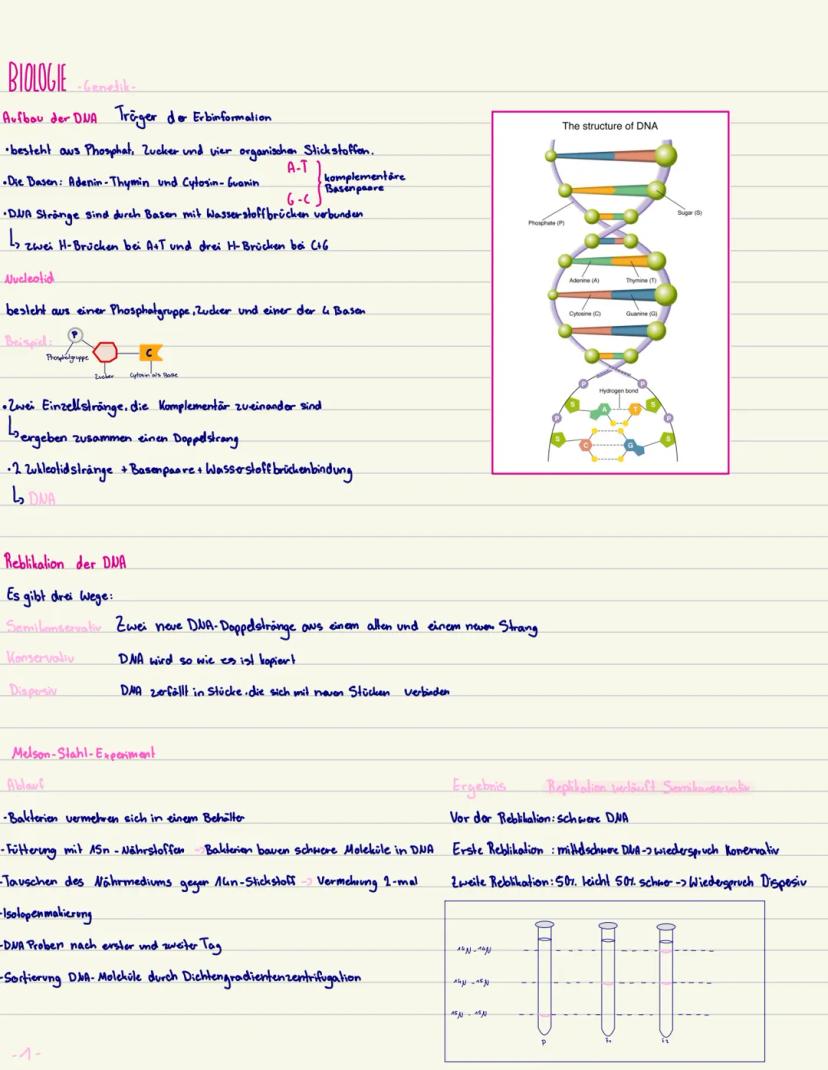 BIOLOGIE -Genetik-
Aufbau der DNA Träger der Erbinformation
•besteht aus Phosphat, Zucker und vier organischen Stickstoffen.
•Die Basen: Adenin-Thymin und Cytosin-Guanin
A-T
G-C
komplementäre
Basenpaare
•DNA Stränge sind durch Basen mit Wasserstoffbrücken verbunden
↳ zwei H-Brücken bei A+T und drei H-Brücken bei C+G
Nucleotid
besteht aus einer Phosphatgruppe, Zucker und einer der 4 Basen
Beispiel:
P
C
Phosphatgruppe
Zucker
Cytosin als Base
•Zwei Einzelstränge, die Komplementär zueinander sind
↳ ergeben zusammen einen Doppelstrang
•2 Zukleotidstränge + Basenpaare + Wasserstoffbrückenbindung
↳ DNA
The structure of DNA
Phosphate (P)
Sugar (S)
Adenine (A) Thymine (T)
Cytosine (C) Guanine (G)
P P
Hydrogen bond
S A T S
P P
S C G S
Reblikation der DNA
Es gibt drei Wege:
Semikonservativ Zwei neue DNA-Doppelstränge aus einem alten und einem neuen Strang
Konservativ DNA wird so wie es ist kopiert
Dispersiv DNA zerfällt in Stücke, die sich mit neuen Stücken verbinden
Melson-Stahl-Experiment
Ablauf
-Bakterien vermehren sich in einem Behälter
-Fütterung mit 15n-Nährstoffen -> Bakterien bauen schwere Moleküle in DNA
-Tauschen des Nährmediums gegen 14n-Stickstoff -> Vermehrung 2-mal
-Isotopenmakierung
-DNA Proben nach erster und zweiter Tag
-Sortierung DNA-Moleküle durch Dichtengradientenzentrifugation
Ergebnis Replikation verläuft Semikonservativ
Vor der Reblikation: schwere DNA
Erste Reblikation : mittelschwere DNA -> wiederspruch Konervativ
Zweite Reblikation: 50% leicht 50% schwer -> Wiederspruch Dispesiv
14N - 14N
14N - 15N
15N - 15N
P
-1-